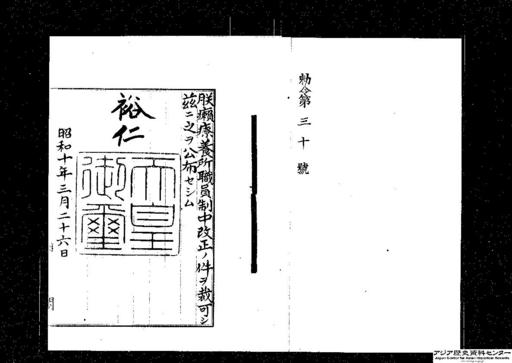 勅令第三十號
朕癩療養所職員制中改正ノ件ヲ裁可シ
茲ニ之ヲ公布セシム
裕仁
天皇御璽
昭和十年三月二十六日
アジア歴史資料センター
Japan Center for Asian Historical Records